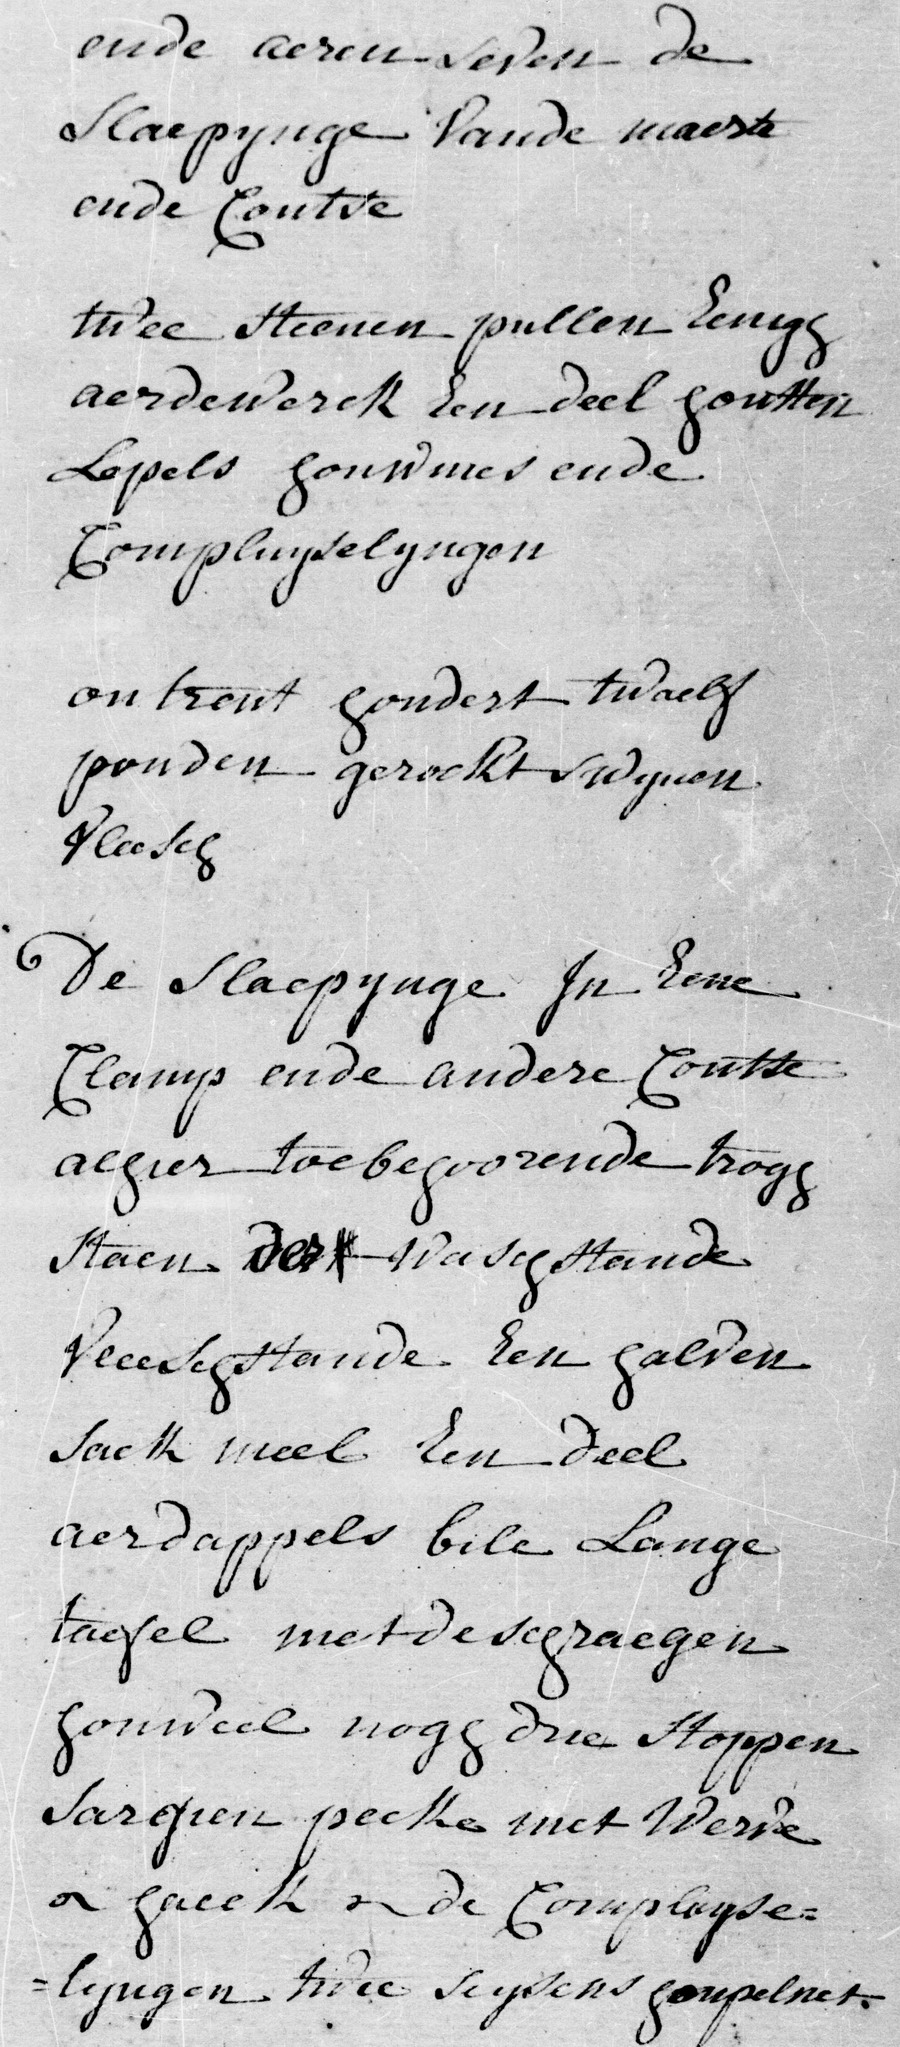 ende aeren seven de
Slaepynge vande maerte
ende Coutse
twee steenen pullen Eenigh
aerdewerck Een deel houtten
Lepels houwmes ende
Compluyselyngen
ontrent hondert twaelf
ponden gerockt swynen
vleesch
De Slaepynge In Eene
Clamp ende andere Coutse
alhier toebehoorende trogh
staen waschstande
vleeschstande Een halven
sack meel Een deel
aerdappels bile Lange
taefel met de schraegen
houweel nogh drie stoppen
sargien pecke met werve
haeck de Compluyse=
=lyngen twee seysens